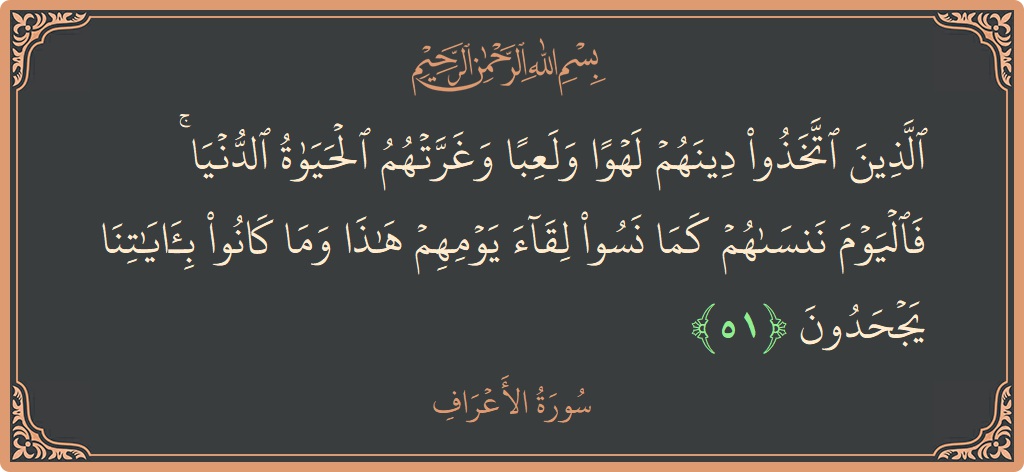 بِسْمِ اللَّهِ الرَّحْمَٰنِ الرَّحِيمِ
ٱلَّذِينَ ٱتَّخَذُوا۟ دِينَهُمْ لَهْوًا وَلَعِبًا وَغَرَّتْهُمُ ٱلْحَيَوٰةُ ٱلدُّنْيَا ۚ
فَٱلْيَوْمَ نَنسَىٰهُمْ كَمَا نَسُوا۟ لِقَآءَ يَوْمِهِمْ هَٰذَا وَمَا كَانُوا۟ بِـَٔايَٰتِنَا
يَجْحَدُونَ ﴿٥١﴾
سُورَةُ الأَعْرَافِ